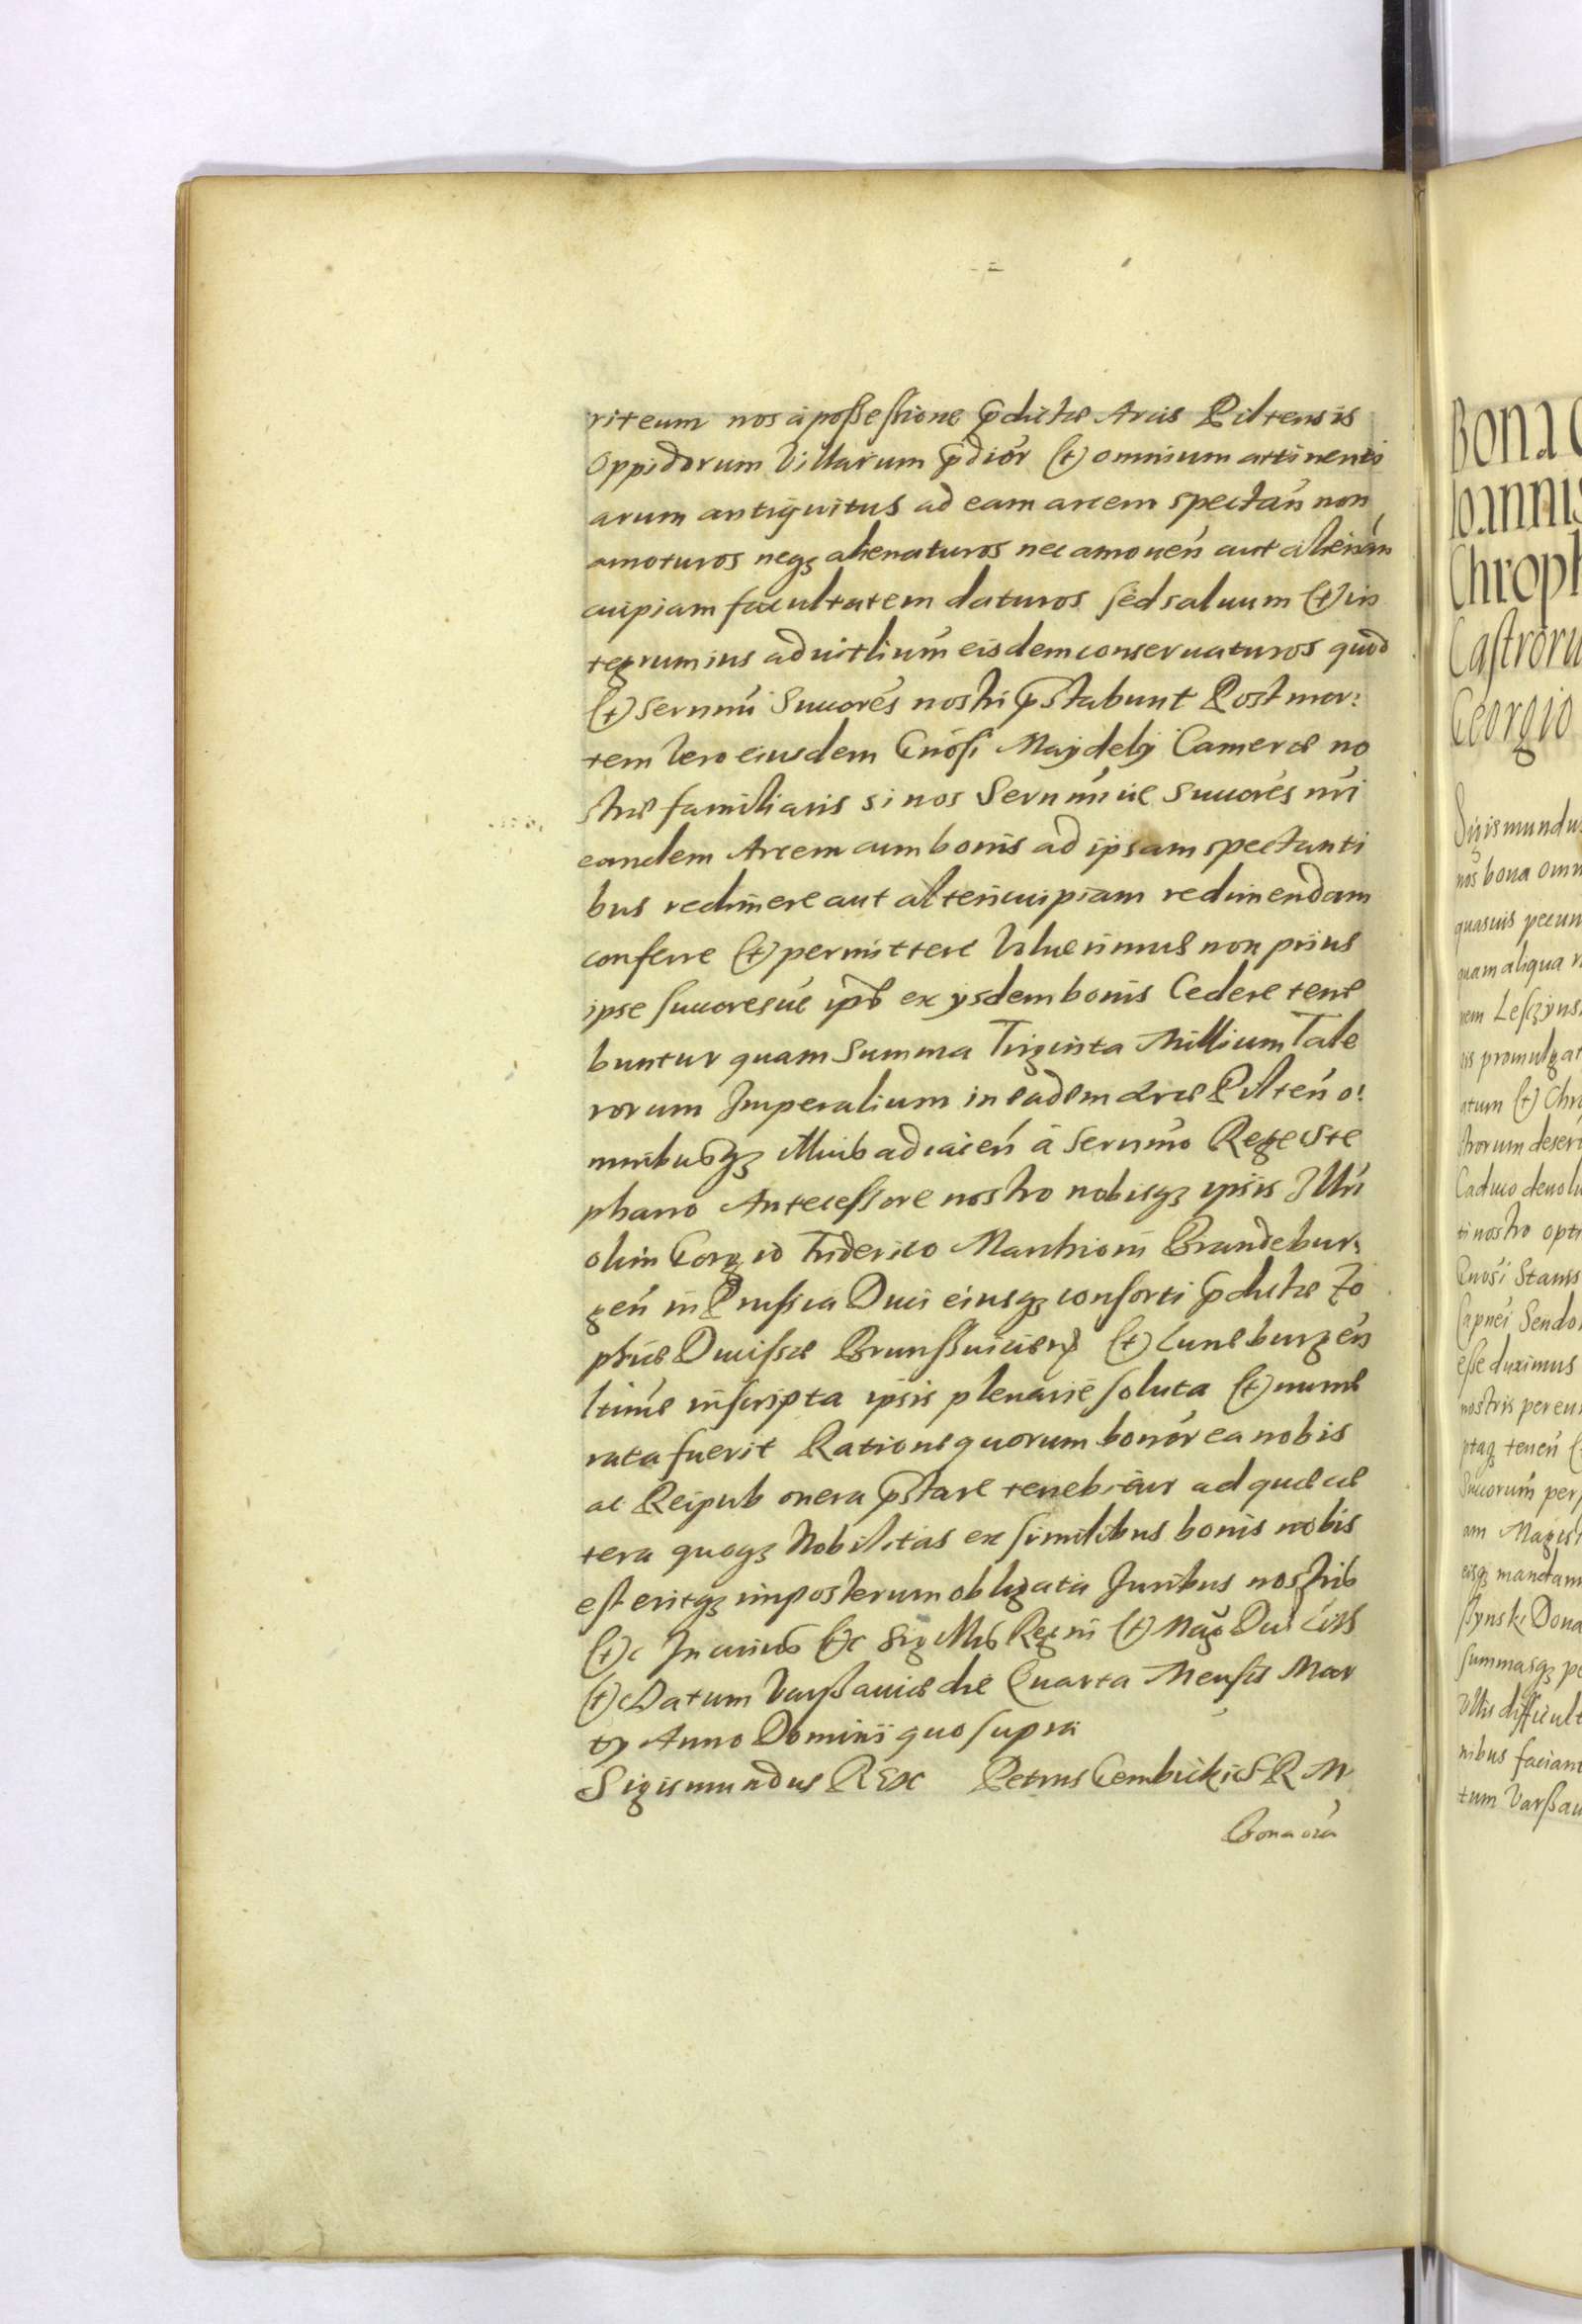 rit eum nos à possessione p̃dictæ Arcis Piltensis
Oppidorum Villarum p̃dior̃ (et) omnium attinenti
arum antiquitus ad eam arcem spectañ non
amoturos neqȝ alienaturos nec amoueñ aut alienañ
cuipiam facultatem daturos sed saluum (et) in
tegrum ius aduitlium̃ eisdem conseruaturos quod
(et) Sernmi Succores̃ nostri p̃stabunt Post mor:
tem Vero eiusdem Gñosi Maydely Cameræ no
stræ familiaris si nos Sernmi ue Succores̃ nr̃i
eandem Arcem cum bonis ad ipsam spectanti
bus redimere aut alteri cuipiam redimendam
conferre (et) permittere Voluerimus non prius
ipse succoresue ip̃s ex ysdem bonis Cedere tene
buntur quam Summa Triginta Millium Tale
rorum Imperalium in eadem Arce Pilteñ o:
mnibusqȝ illius adiaceñ à Sernmo Rege Ste
phano Antecessore nostro nobisqȝ ipsis Illri
olim Georgio Friderico Marchioni Brandebur:
geñ in Prussia Duci eiusqȝ consorti p̃dictæ Zo
phiæ Ducissæ Brunssuicieñ (et) Luneburgeñ
ltime inscripta ipsis plenarie soluta (et) nume
rata fuerit Ratione quorum bonor̃ ea nobis
ac Reipub onera p̃stare tenebitur ad quæ cæ
tera quoqȝ Nobilitas ex similibus bonis nobis
est eritqȝ imposterum obligata Iuribus nostris
(et)c In cuius (et)c Sigillis Regni (et) Mag̃ Duc̃ Litt̃
(et)c Datum Varssauiæ die Quarta Mensis Mar
ty Anno Domini quo supra
Sigismundus REX Petrus Gembicki S R M
Bona oĩa
Bona
Ioannis
Chroph
Castroru
Georgio
Sigismundus
nos bona omn
quasuis pecun
quam aliqua
nem Lesczyns
is promulgat
atum (et) Chr
strorum deser
Caduco deuolu
ti nostro opti
Gnosi Stanis
Capnei Sendo
esse duximus
nostris pereu
ptaqȝ teneñ
Succorum̃ per
am Magist
eisqȝ mandam
stynski Dona
summasqȝ pe
Vllis difficult
nibus faciant
tum Varssau